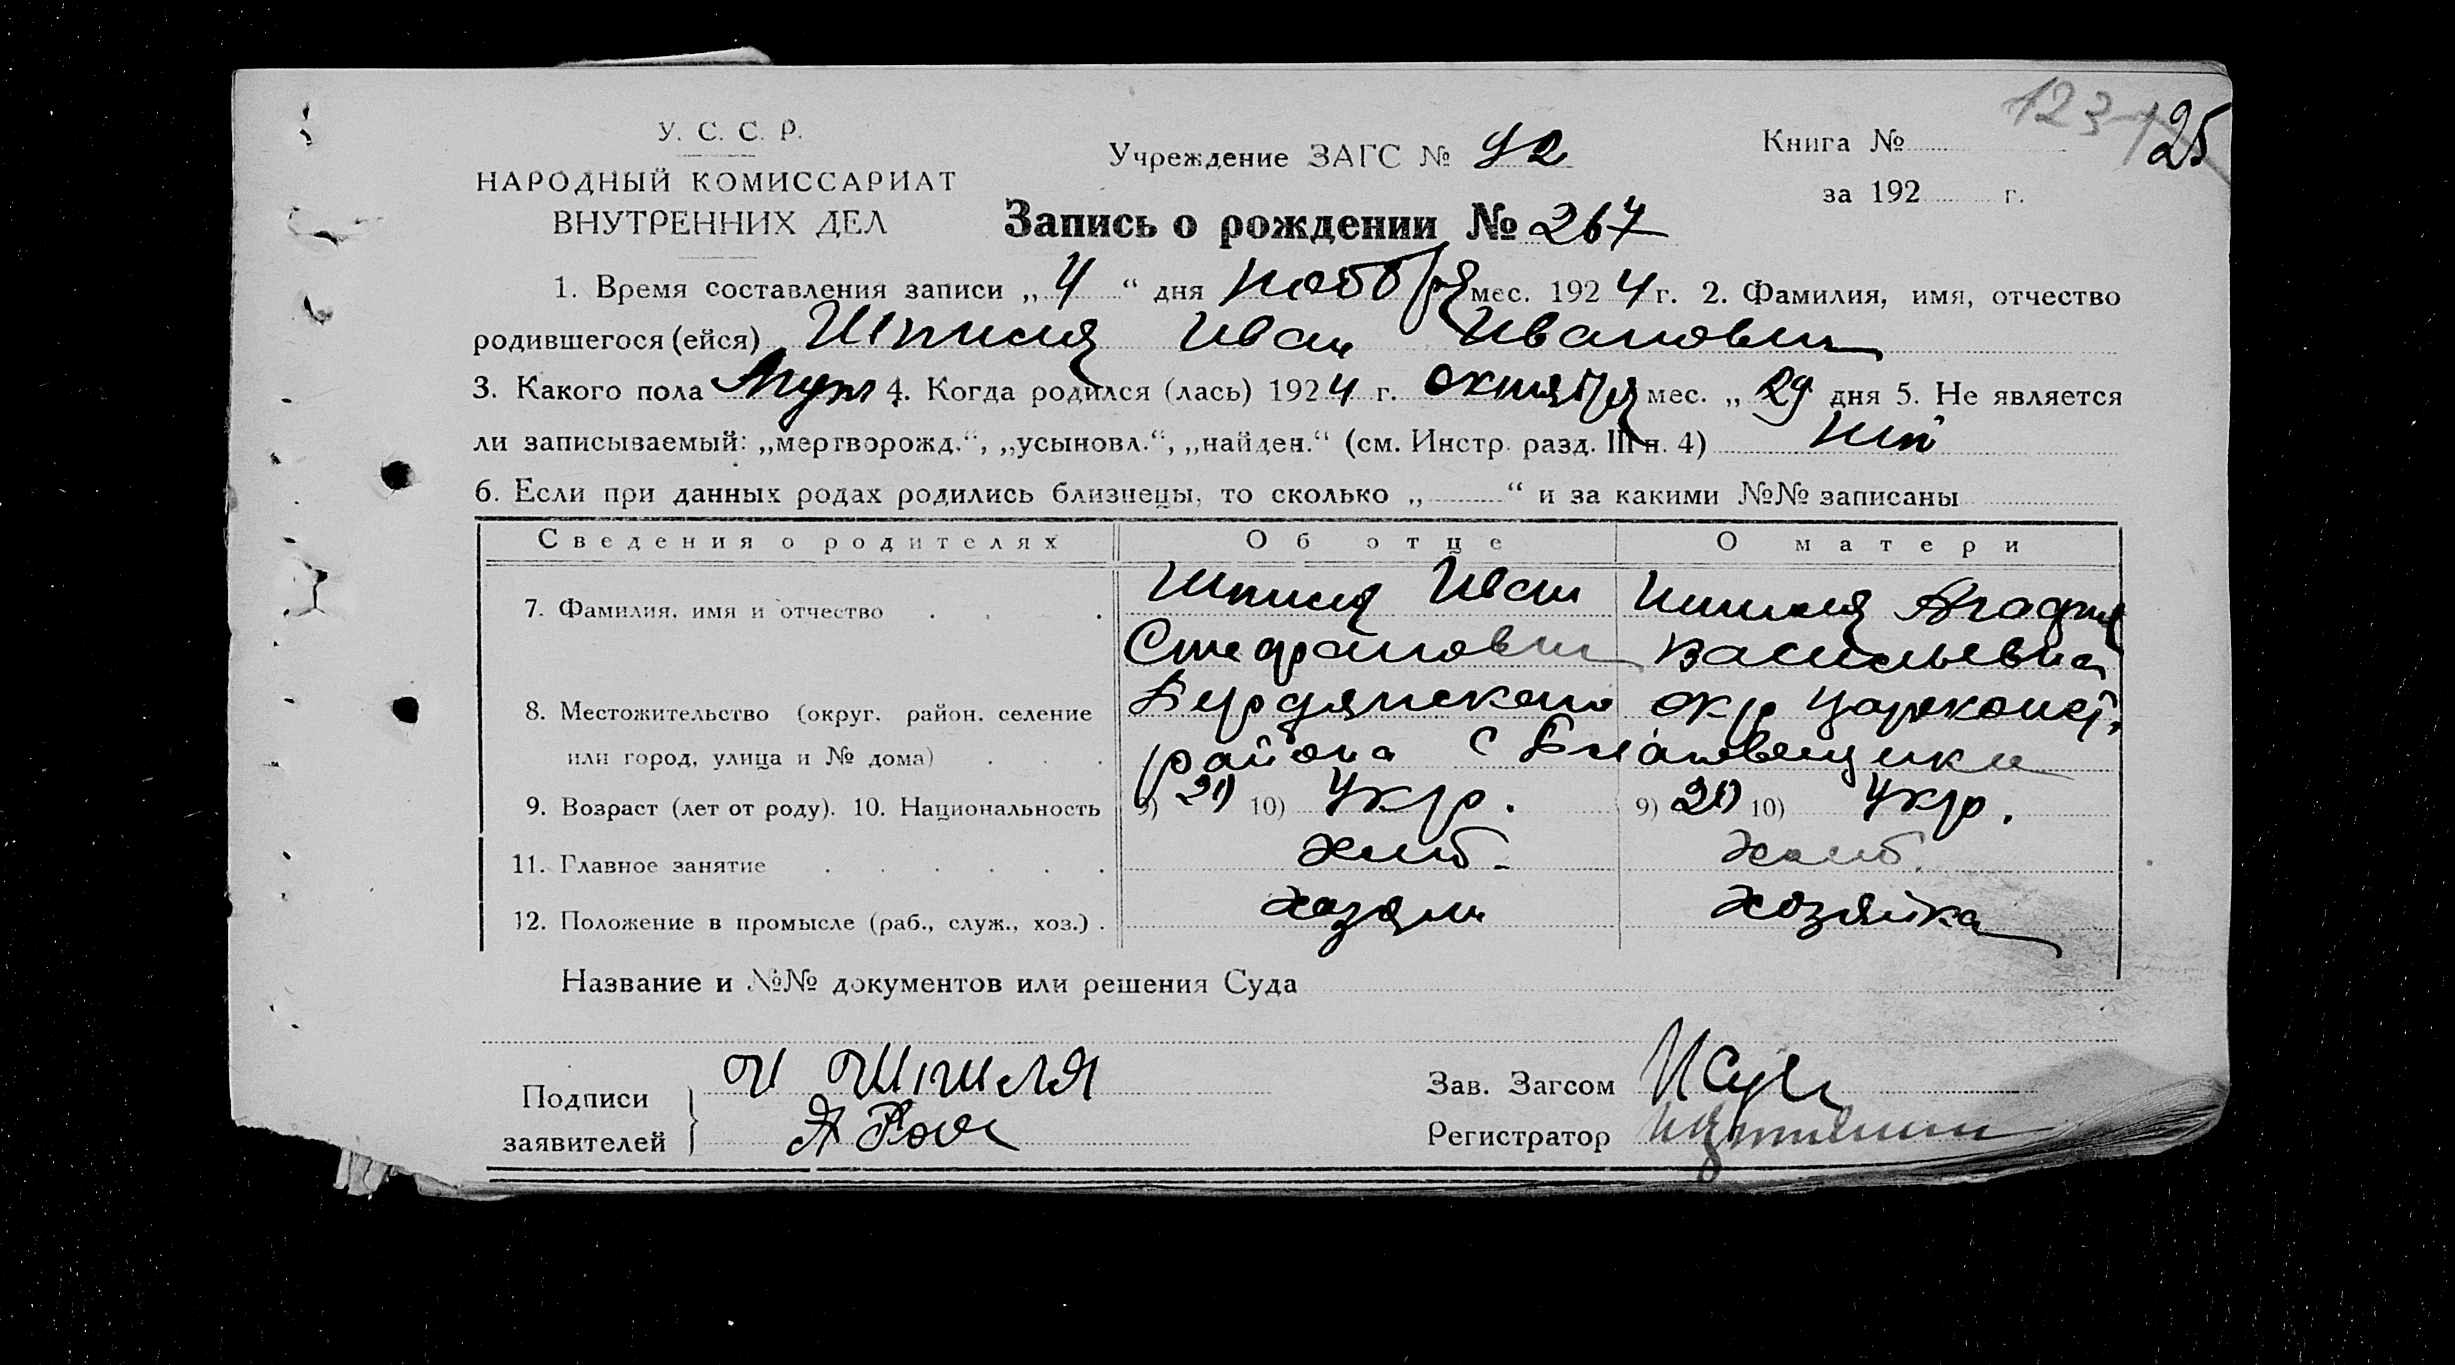 123 125
У. С. С. Р.
НАРОДНЫЙ КОМИССАРИАТ
ВНУТРЕННИХ ДЕЛ
Учреждение ЗАГС № 92
Книга №
за 192 г.
Запись о рождении № 267
1. Время составления записи „ 4 “ дня ноября мес. 1924 г. 2. Фамилия, имя, отчество
родившегося (ейся) Шпиля Иван Иванович
3. Какого пола Муж 4. Когда родился (лась) 1924 г. октября мес. „ 29 дня 5. Не является
ли записываемый: „мертворожд.“, „усыновл.“, „найден.“ (см. Инстр. разд. III п. 4) нет
6. Если при данных родах родились близнецы, то сколько „ “ и за какими №№ записаны
Сведения о родителях Об отце О матери
7. Фамилия, имя и отчество Шпиля Иван Шпиля Агафия
Стефанович Васильевна
8. Местожительство (округ, район, селение Бердянского окр Цареконст.
или город, улица и № дома) района с
9. Возраст (лет от роду). 10. Национальность 9) 20 10) Укр. 9) 20 10) Укр.
11. Главное занятие хлеб. хлеб.
12. Положение в промысле (раб., служ., хоз.) хозяин хозяйка
Название и №№ документов или решения Суда
Подписи
заявителей
И Шпиля
Зав. Загсом
Регистратор